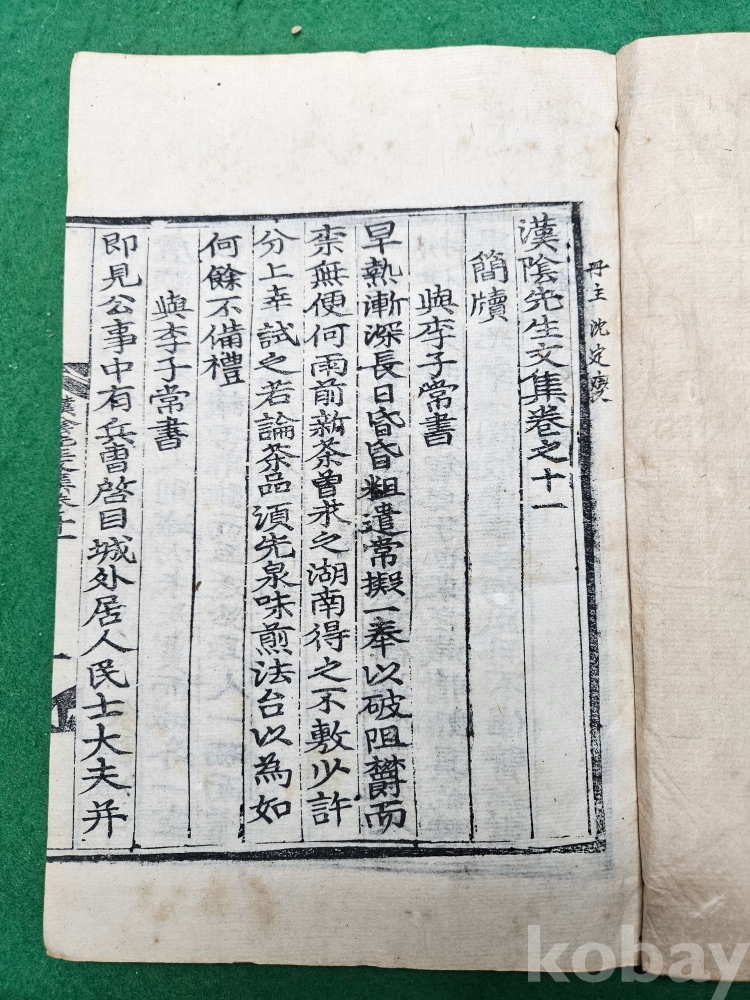 冊主 沈定
漢陰先生文集卷之十一
簡牘
與李子常書
早熱漸深長日昏昏粗遣常擬一奉以破阻欝而
柰無便何雨前新茶曾求之湖南得之不敷少許
分上幸試之若論茶品須先泉味煎法台以為如
何餘不備禮
與李子常書
即見公事中有兵曹啓目城外居人民士大夫并
漢陰先生文集卷十一
kobay